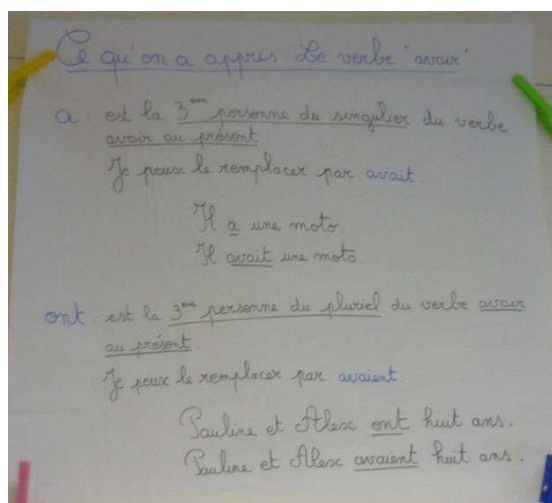 Ce qu'on a appris Le verbe "avoir"
a : est la 3ème personne du singulier du verbe
avoir au présent
Je peux le remplacer par avait.
Il a une moto.
Il avait une moto.
ont : est la 3ème personne du pluriel du verbe avoir
au présent.
Je peux le remplacer par avaient.
Pauline et Alex ont huit ans.
Pauline et Alex avaient huit ans.